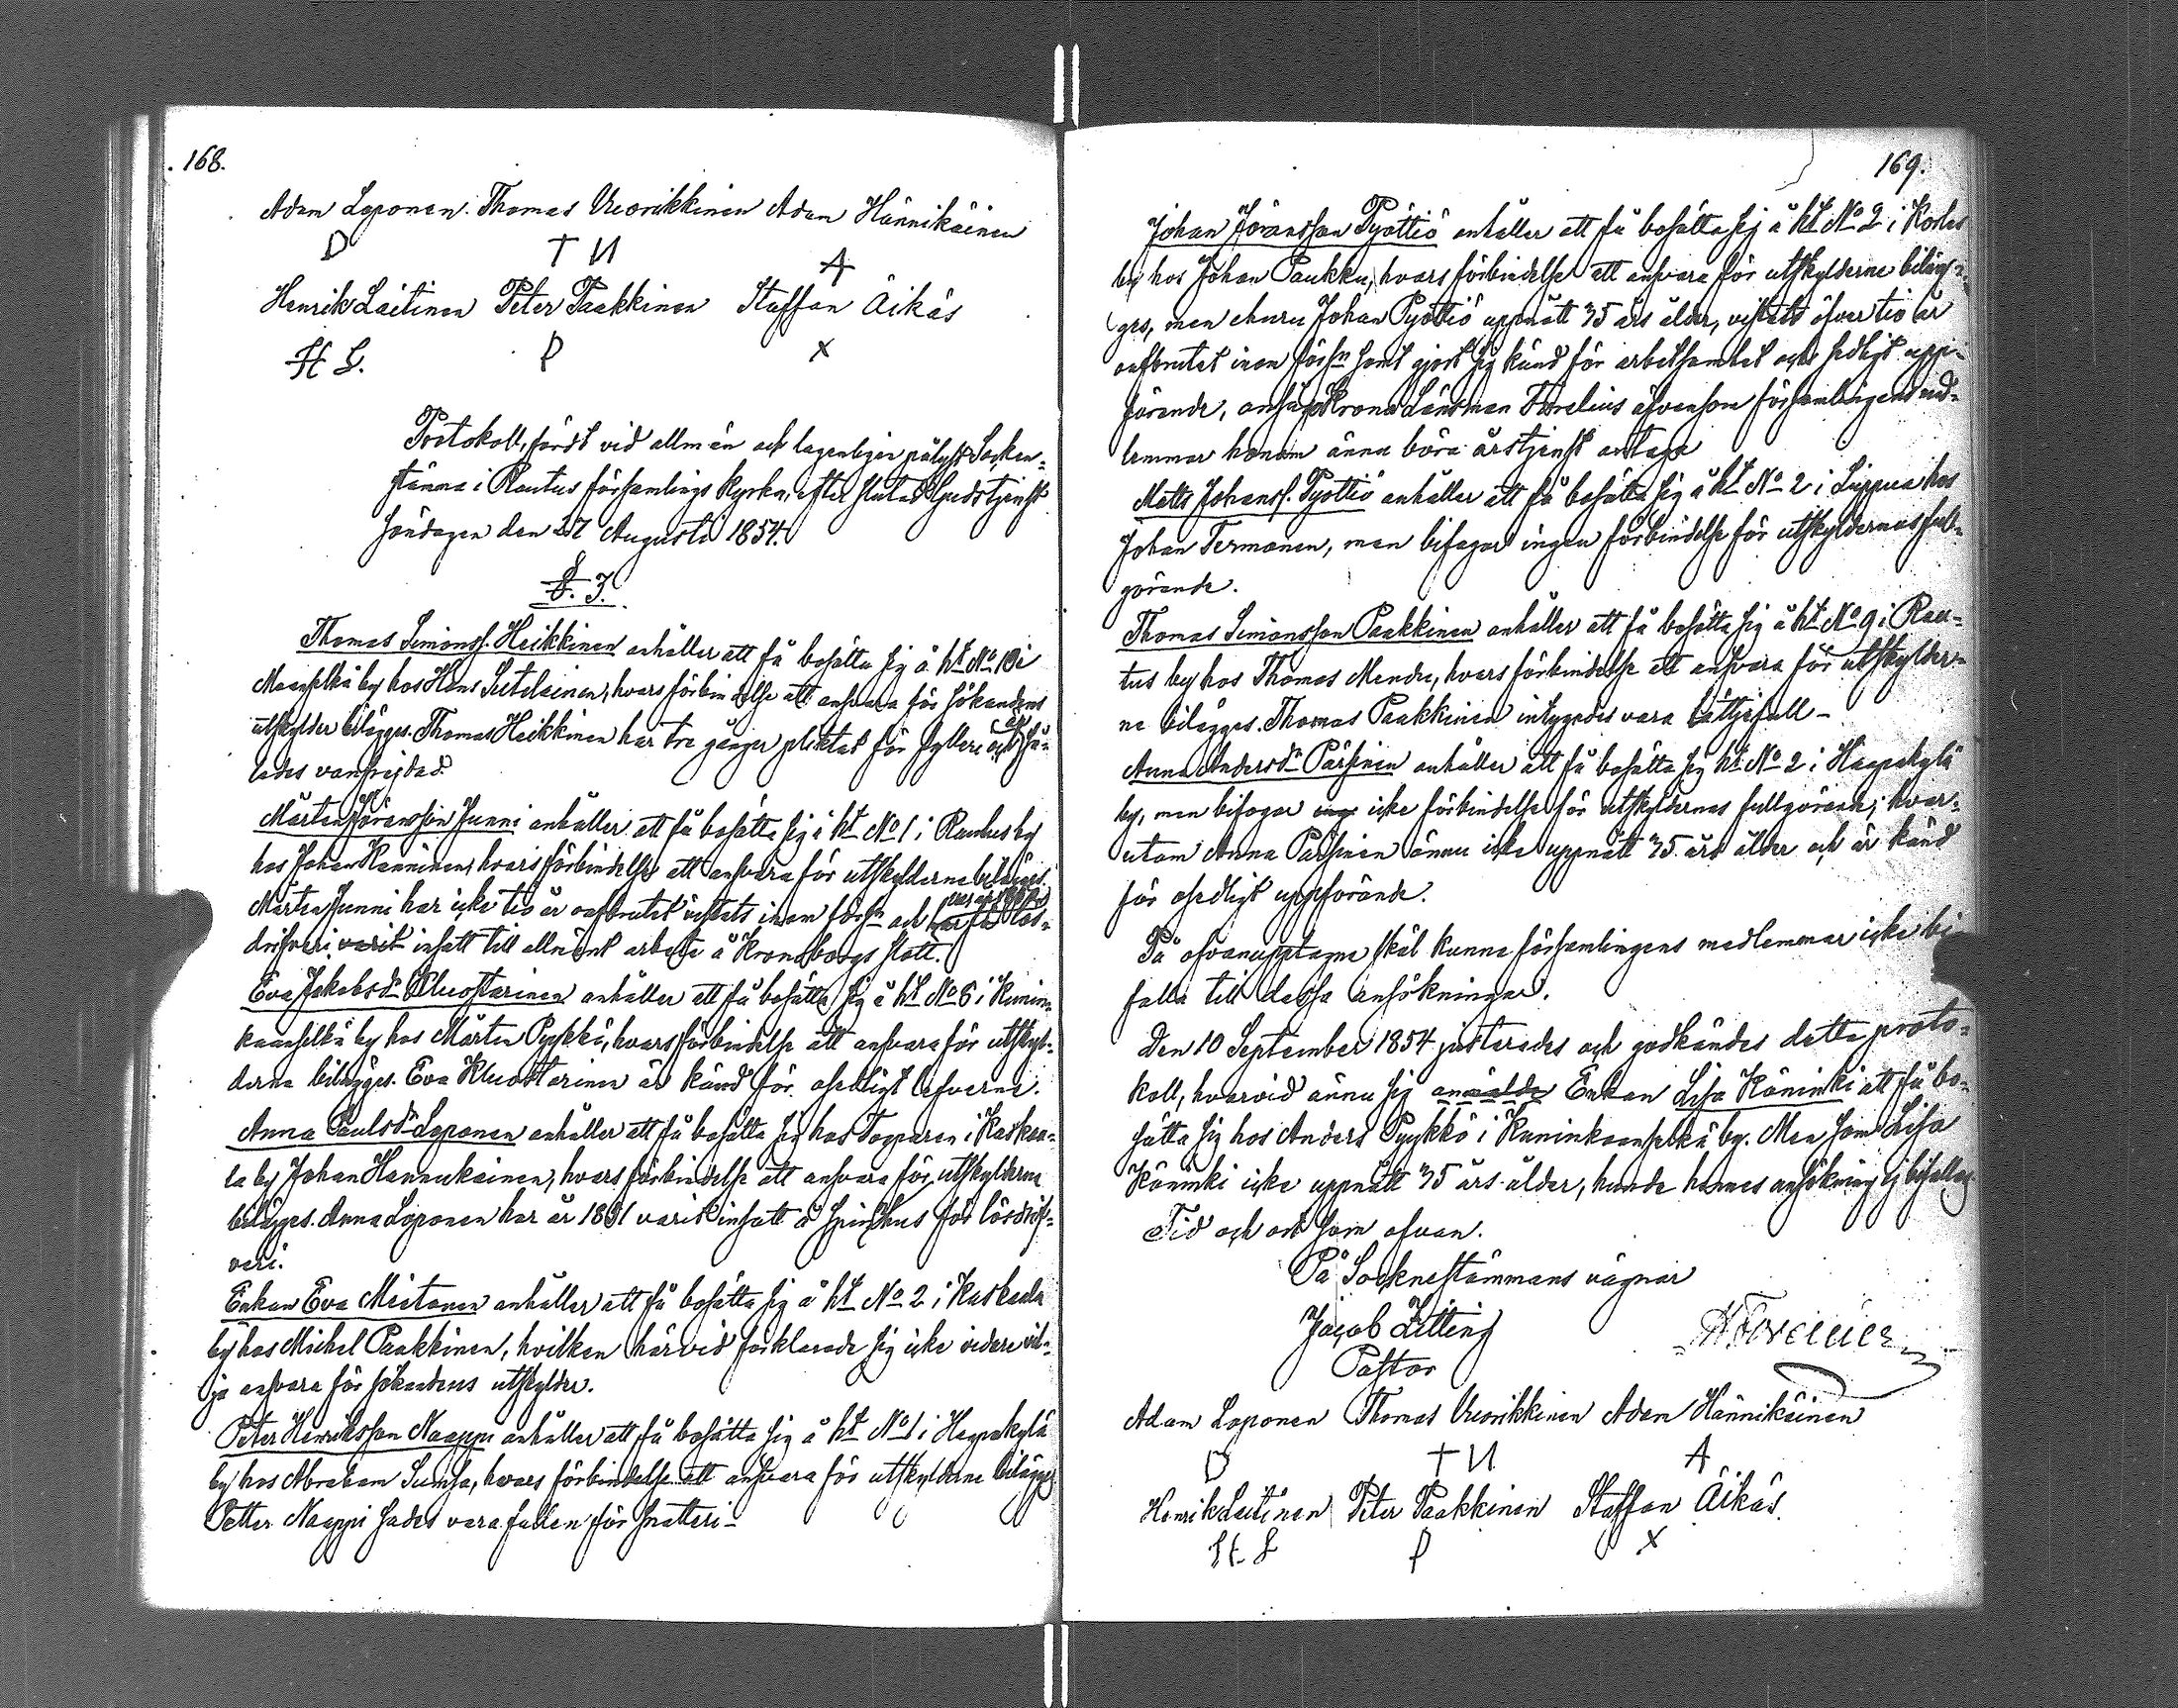 168.
Adam Loponen. Thomas Vuorikkinen Adam Hännikäinen
D † И A
Henrik Laitinen Peter Paakkinen Staffan Äikäs
H L. P X
Protokoll, fördt vid allmän och lagenligen pålyst Socken-
stämma i Rautus församlings kyrka, efter slutad Gudstjenst
Söndagen den 27 Augusti 1854.
§. 3.
Thomas Simonss. Heikkinen anhåller att få bosätta sig å ht No 10 i
Maanselkä by hos Hans Sutelainen, hvars förbindelse att ansvara för sökandens
utskylder bilägges. Thomas Heikkinen har tre gånger pliktat för fylleri och är så-
ledes vanfrejdad.
Mårten Göransson Junni anhåller att få bosätta sig å ht No 1 i Rautus by
hos Johan Hänninen, hvars förbindelse att ansvara för utskylderne bilägges.
Mårten Junni har icke tio år oafbrutet vistats inom försn och för lös-
drifveri varit insatt till allmänt arbete å Kronoborgs slott.
Eva Jakobsdr Kluostarinen anhåller att få bosätta sig å ht No 6 i Kunin-
kaanselkä by hos Mårten Pyykkö, hvars förbindelse att ansvara för utskyl-
derna bilägges. Eva Kluostarinen är känd för osedligt lefverne.
Anna Paulsdr Loponen anhåller att få bosätta sig hos Torparen i Kaskaa-
la by Johan Hannukainen, hvars förbindelse att ansvara för utskylderne
bilägges. Anna Loponen har år 1851 varit insatt å spinhus för lösdrif-
veri.
Enkan Eva Mietonen anhåller att få bosätta sig å ht No 2 i Kaskaala
by hos Michel Paakkinen, hvilken härvid förklarade sig icke vidare vil-
ja ansvara för sökandens utskylder.
Peter Henriksson Naappi anhåller att få bosätta sig å ht No 1 i Haapakylä
by hos Abraham Sumsa, hvars förbindelse att ansvara för utskylderne bilägges
Petter Naappi sades vara fallen för snatteri-
169.
Johan Göransson Pyöttiö anhåller att få bosätta sig å ht No 2 i Korles
by hos Johan Paukku, hvars förbindelse att ansvara för utskylderne biläg-
ges, men ehuru Johan Pyöttiö uppnått 35 års ålder, vistats öfver tio år
oafbrutet inom försn samt gjort sig känd för arbetsamhet och sedligt upp-
förande, ansågo Krono Länsman Forelius äfvensom församlingens med-
lemmar honom ännu böra årstjenst antaga
Matts Johanss. Pyöttiö anhåller att få bosätta sig å ht No 2 i Lippua hos
Johan Termonen, men bifogar ingen förbindelse för utskyldernas full-
görande.
Thomas Simonsson Paakkinen anhåller att få bosätta sig å ht No 9 i Rau-
tus by hos Thomas Mendu, hvars förbindelse att ansvara för utskylder-
ne bilägges. Thomas Paakkinen intygades vara lättjefull-
Anna Andersdr Pärsinen anhåller att få bosätta sig ht No 2 i Haapakylä
by, men bifogar icke förbindelse för utskyldernas fullgörande; hvar-
utom Anna Pärsinen ännu icke uppnått 35 års ålder och är känd
för osedligt uppförande.
På ofvanupptagne skäl kunna församlingens medlemmar icke bi-
falla till dessa ansökningar.
Den 10 September 1854 justerades och godkändes detta proto-
koll, hvarvid ännu sig anmälde Enkan Lisa Köninki att få bo-
sätta sig hos Anders Pyykkö i Kuninkaanselkä by. Men som Lisa
Köninki icke uppnått 35 års ålder, kunde hennes ansökning ej bifallas
Tid och ort som ofvan.
På Socknestämmans vägnar
Jacob Zitting
Pastor
Adam Loponen Thomas Vuorikkinen Adam Hännikäinen
D † И A
Henrik Laitinen Peter Paakkinen Staffan Äikäs.
H L P X